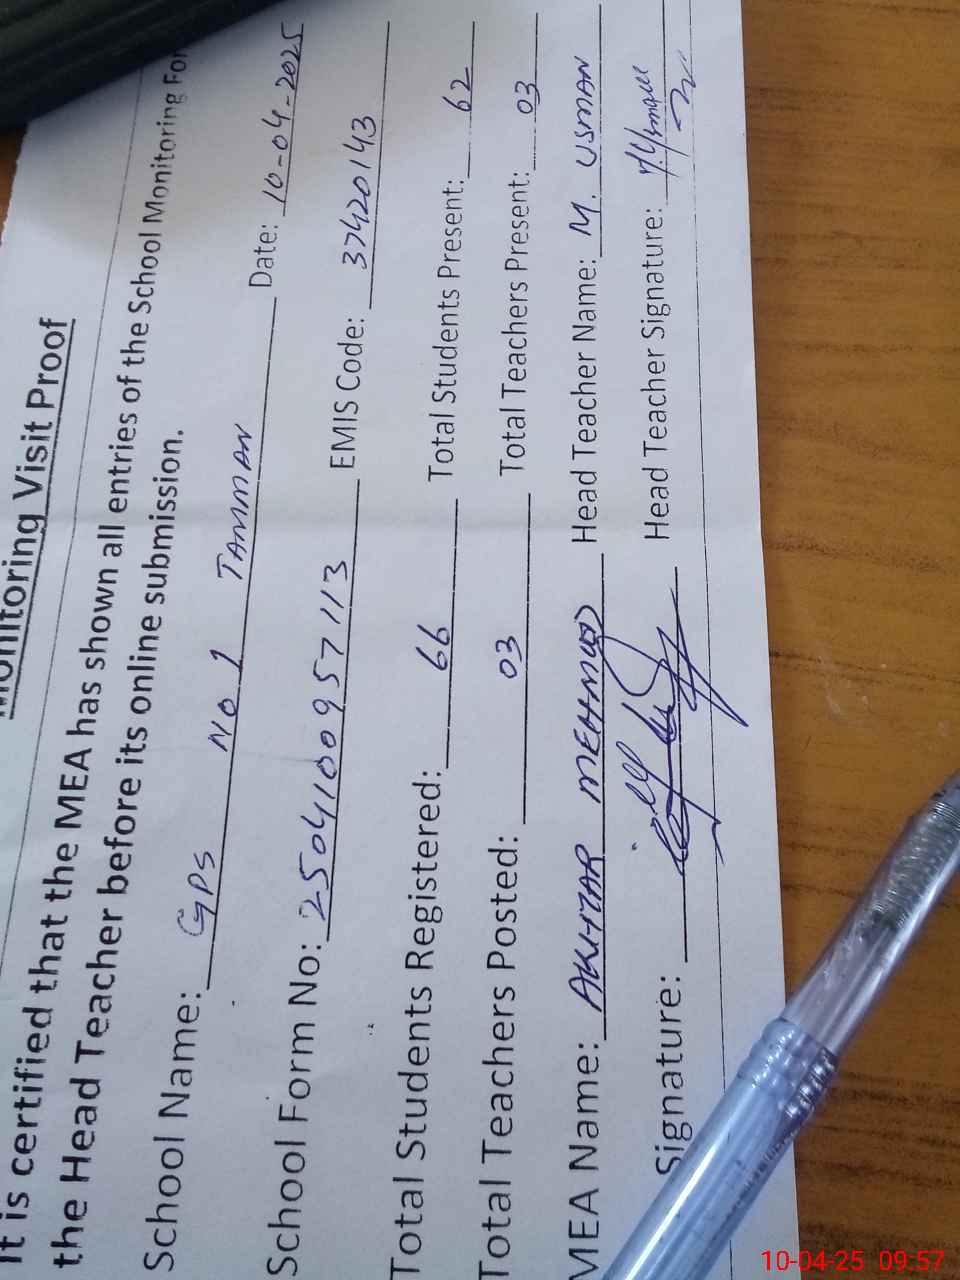 Monitoring Visit Proof
It is certified that the MEA has shown all entries of the School Monitoring For
the Head Teacher before its online submission.
School Name: GPS No 1 TAMMAN Date: 10-04-2025
School Form No: 2504100957113 EMIS Code: 37420143
Total Students Registered: 66 Total Students Present: 62
Total Teachers Posted: 03 Total Teachers Present: 03
MEA Name: AKHTAR MEHMOOD Head Teacher Name: M. USMAN
Signature: Head Teacher Signature:
10-04-25 09:57